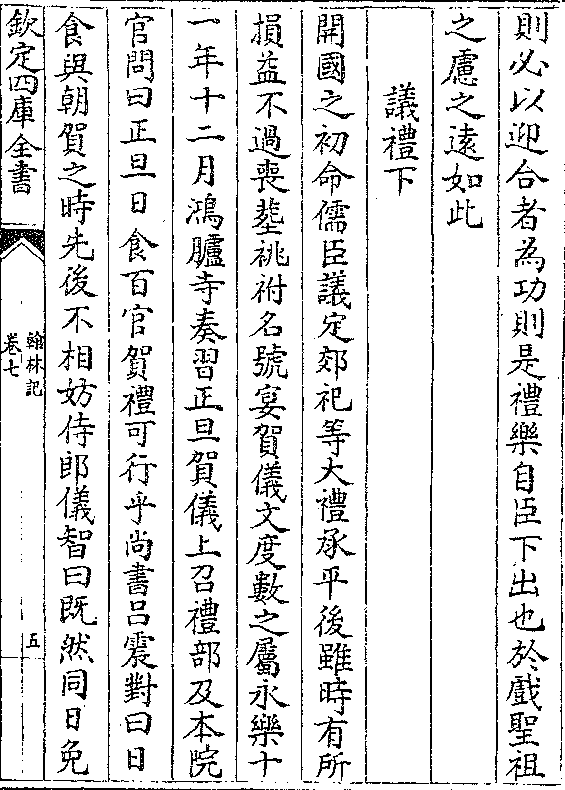 則必以迎合者為功則是禮樂自臣下出也於戲聖祖
之慮之遠如此
議禮下
開國之初命儒臣議定郊祀等大禮承平後雖時有所
損益不過喪塟祧祔名號宴賀儀文度數之屬永樂十
一年十二月鴻臚寺奏習正旦賀儀上召禮部及本院
官問曰正旦日食百官賀禮可行乎尚書吕震對曰日
食與朝賀之時先後不相妨侍郎儀智曰既然同日免
欽定四庫全書
翰林記
卷七
五